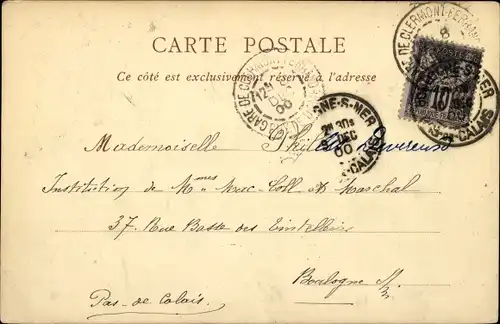 CARTE POSTALE
Ce côté est exclusivement réservé à l'adresse
GARE DE CLERMONT-FERRAND
BOULOGNE-S-MER
10
PAS-DE-CALAIS
GARE DE CLERMONT-FERRAND
BOULOGNE-S-MER
30
DEC
00
CALAIS
Mademoiselle
Institution de Mmes Mac-Coll & Maschal
37 Rue Basse des Tintelleries
Boulogne s/m
Pas-de-Calais.